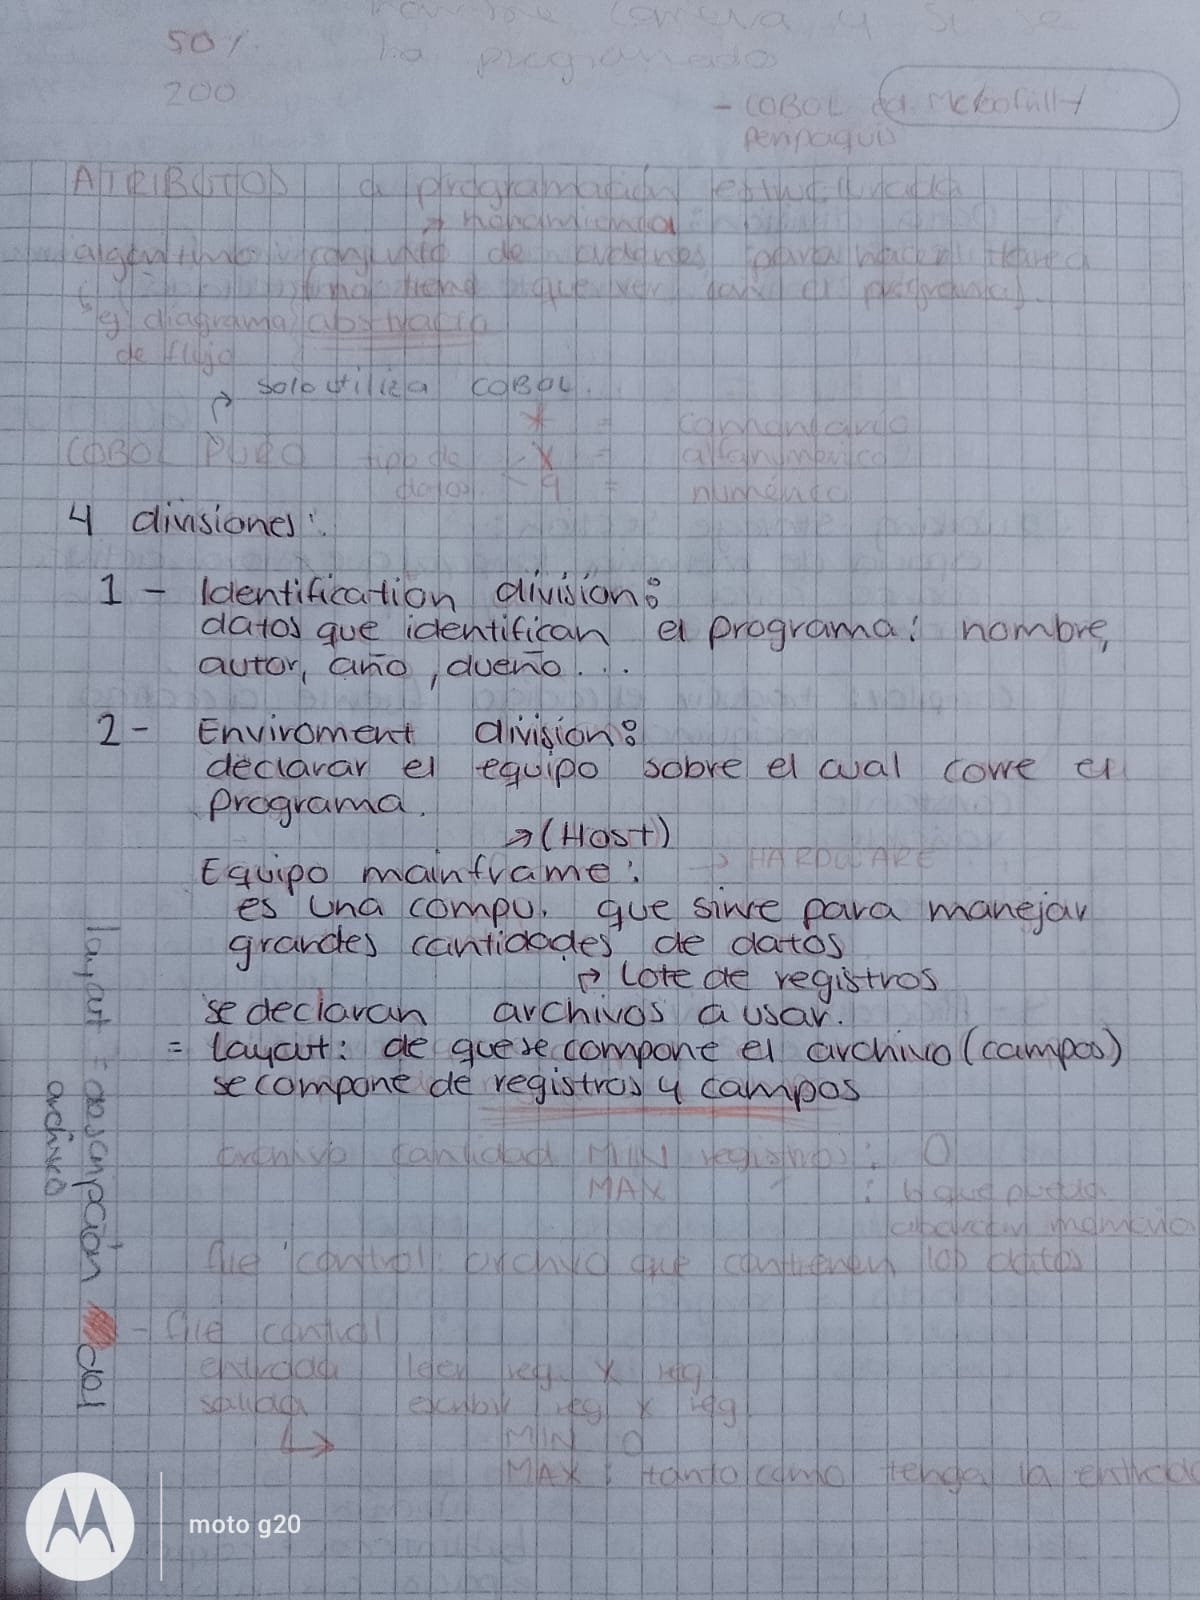 50%
200
la programado
- COBOL
ATRIBUTOS a programación estructurada
→ herramienta
algoritmo: conjunto de acciones para hacer tarea
(no tiene que ver con el programa)
ej diagrama abstracto
de flujo
solo utiliza COBOL.
* = comentario
COBOL PURO tipo de < X = alfanumérico
datos. < 9 = numérico
4 divisiones:
1 - Identification división:
datos que identifican el programa: nombre,
autor, año, dueño...
2 - Enviroment división:
declarar el equipo sobre el cual corre el
programa.
→ (Host)
→ HARDWARE
Equipo mainframe:
es una compu. que sirve para manejar
grandes cantidades de datos
→ Lote de registros
se declaran archivos a usar.
= layout: de que se compone el archivo (campos)
se compone de registros y campos
archivo cantidad MIN registros: 0
MAX : lo que pueda
abarcar memoria
file control: archivo que contienen los datos
- file control
entrada leer reg x reg
salida escribir reg x reg
MIN 0
MAX: tanto como tenga la entrada
layout = descripción del
archivo
moto g20